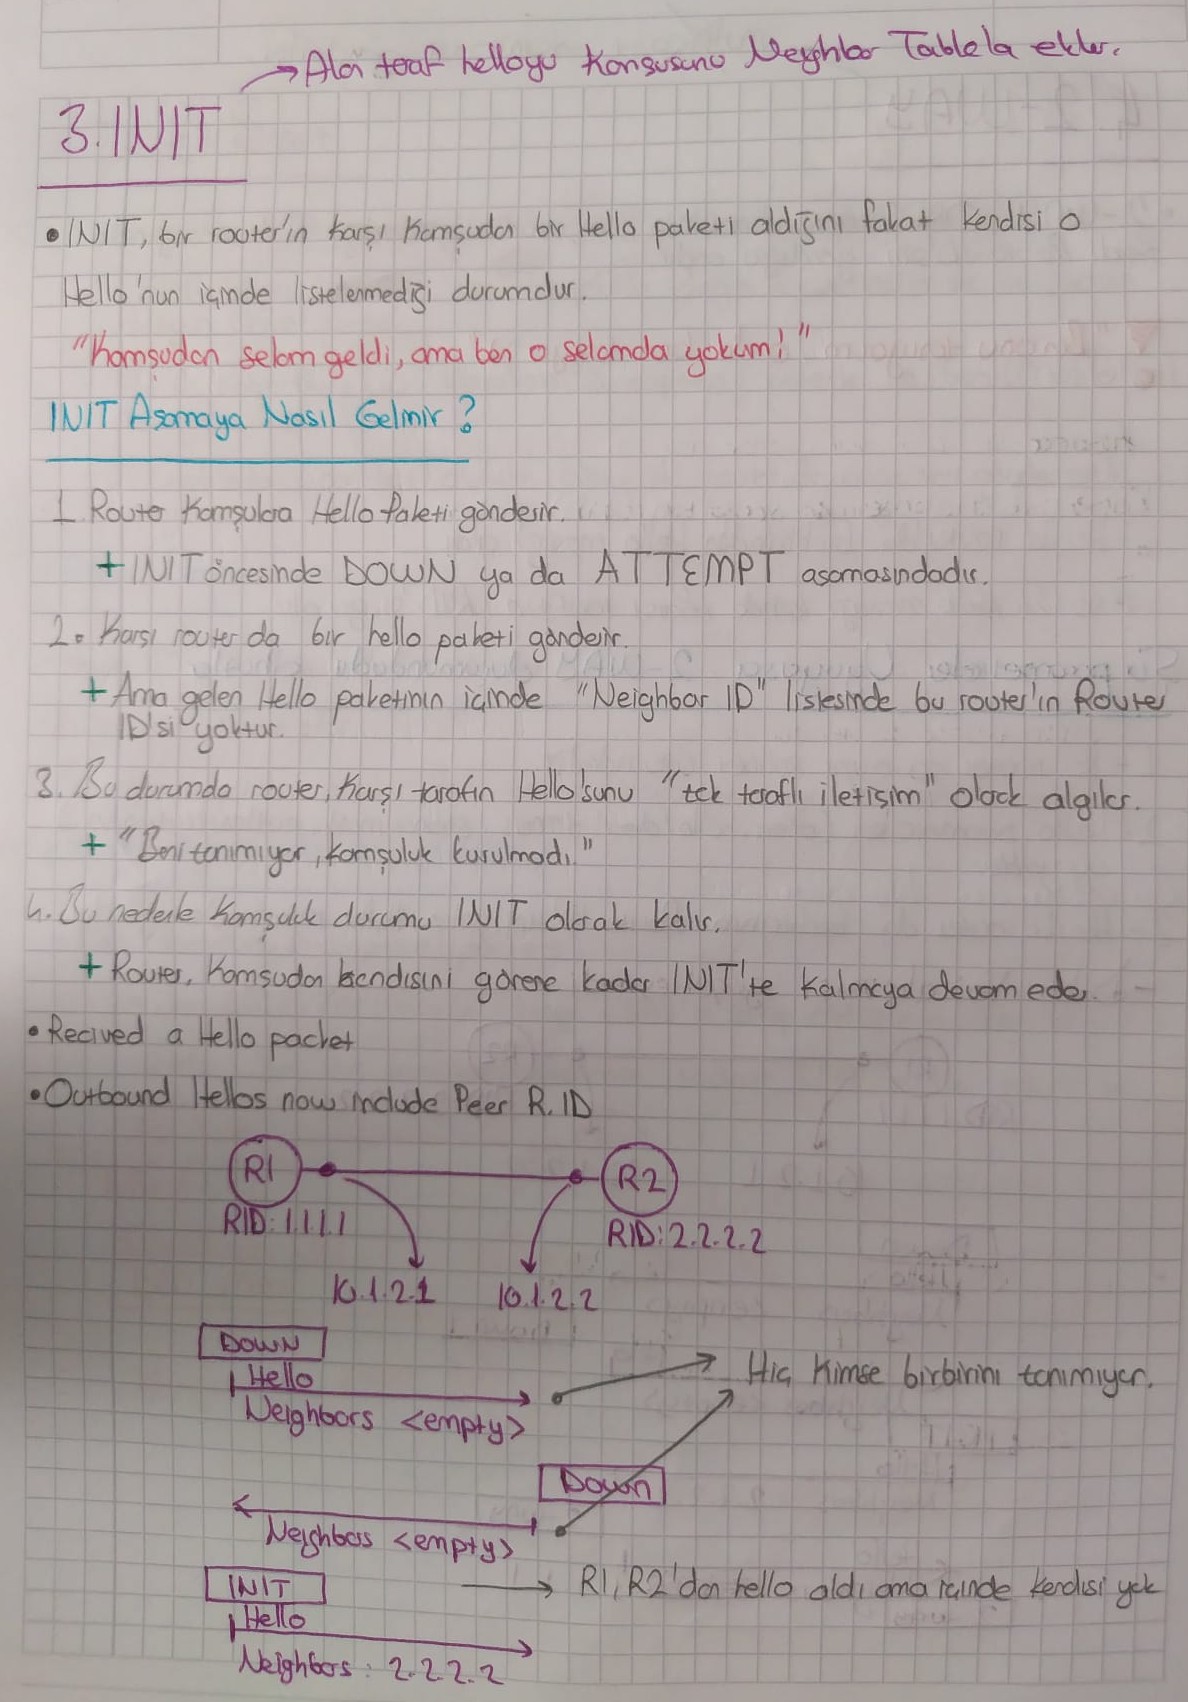 → Alan taraf helloyu Komşusunu Neighbor Table'a ekler.
3. INIT
• INIT, bir router'in karşı Komşudan bir Hello paketi aldığını fakat kendisi o
Hello'nun içinde listelenmediği durumdur.
"Komşudan selam geldi, ama ben o selamda yokum!"
INIT Aşamaya Nasıl Gelinir?
1. Router Komşulara Hello Paketi gönderir.
+ INIT öncesinde DOWN ya da ATTEMPT aşamasındadır.
2. Karşı router da bir hello paketi gönderir.
+ Ama gelen Hello paketinin içinde "Neighbor ID" listesinde bu router'in Router
ID'si yoktur.
3. Bu durumda router, Karşı tarafın Hello'sunu "tek taraflı iletişim" olarak algılar.
+ "Beni tanımıyor, komşuluk kurulmadı."
4. Bu nedenle Komşuluk durumu INIT olarak kalır.
+ Router, Komşudan kendisini görene kadar INIT'te kalmaya devam eder.
• Recived a Hello packet
• Outbound Hellos now include Peer R.ID
R1 R2
RID: 1.1.1.1 RID: 2.2.2.2
10.1.2.1 10.1.2.2
DOWN
Hello → Hiç Kimse birbirini tanımıyor.
Neighbors <empty>
Down
Neighbors <empty>
INIT → R1, R2'dan hello aldı ama içinde kendisi yok
Hello
Neighbors: 2.2.2.2